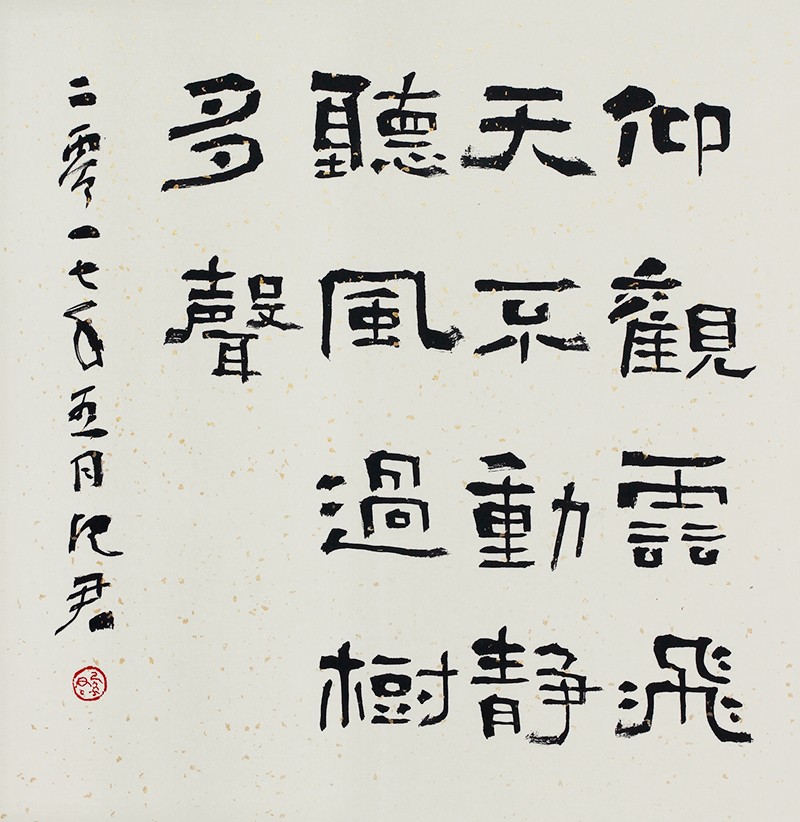 仰觀雲飛
天不動靜
聽風過樹
多聲
二零一七年五月君